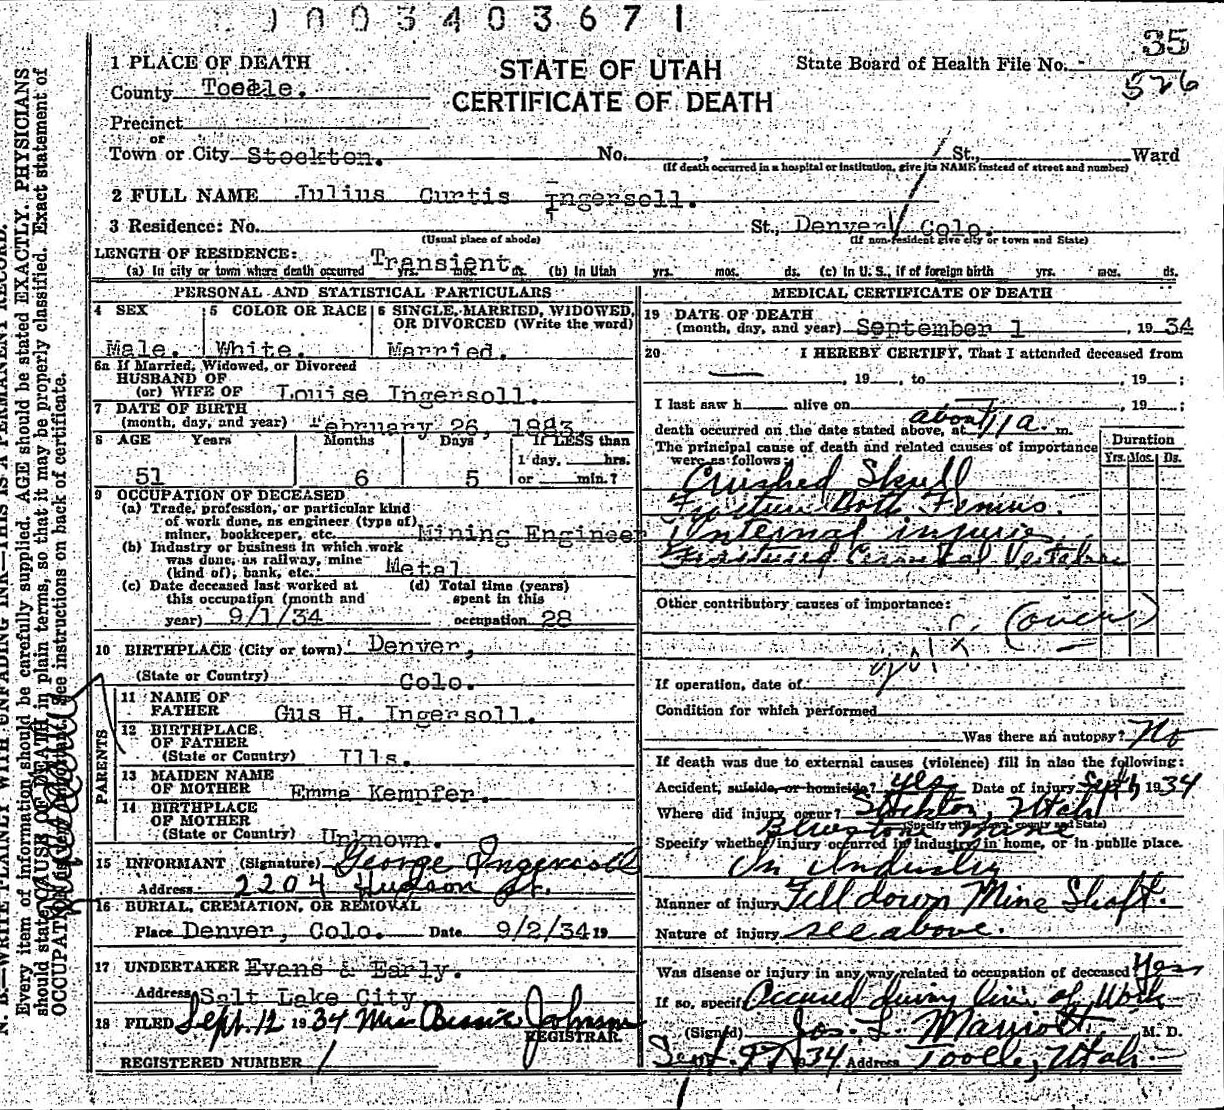 0003403671
35
1 PLACE OF DEATH
STATE OF UTAH
State Board of Health File No.
526
County Tooele.
CERTIFICATE OF DEATH
Precinct
or
Town or City Stockton. No. , St., Ward
(If death occurred in a hospital or institution, give its NAME instead of street and number)
2 FULL NAME Julius Curtis Ingersoll.
3 Residence: No. St., Denver, Colo.
(Usual place of abode) (If non-resident give city or town and State)
LENGTH OF RESIDENCE: Transient.
(a) In city or town where death occurred yrs. mos. ds. (b) In Utah yrs. mos. ds. (c) In U. S., if of foreign birth yrs. mos. ds.
PERSONAL AND STATISTICAL PARTICULARS
4 SEX 5 COLOR OR RACE 6 SINGLE, MARRIED, WIDOWED,
OR DIVORCED (Write the word)
Male. White. Married.
6a If Married, Widowed, or Divorced
HUSBAND OF
(or) WIFE OF Louise Ingersoll.
7 DATE OF BIRTH
(month, day, and year) February 26, 1883.
8 AGE Years Months Days If LESS than
1 day, hrs.
51 6 5 or min.?
9 OCCUPATION OF DECEASED
(a) Trade, profession, or particular kind
of work done, as engineer (type of)
miner, bookkeeper, etc. Mining Engineer
(b) Industry or business in which work
was done, as railway, mine
(kind of), bank, etc. Metal
(c) Date deceased last worked at (d) Total time (years)
this occupation (month and spent in this
year) 9/1/34 occupation 28
10 BIRTHPLACE (City or town) Denver,
(State or Country) Colo.
PARENTS
11 NAME OF
FATHER Gus H. Ingersoll.
12 BIRTHPLACE
OF FATHER
(State or Country) Ills.
13 MAIDEN NAME
OF MOTHER Emma Kempfer.
14 BIRTHPLACE
OF MOTHER
(State or Country) Unknown.
15 INFORMANT (Signature) George Ingersoll
Address 2204 Hudson St.
16 BURIAL, CREMATION, OR REMOVAL
Place Denver, Colo. Date 9/2/34 19
17 UNDERTAKER Evans & Early.
Address Salt Lake City
18 FILED Sept. 12 1934 Mrs Bessie Johnson
REGISTRAR.
REGISTERED NUMBER 1
MEDICAL CERTIFICATE OF DEATH
19 DATE OF DEATH
(month, day, and year) September 1 , 1934
20 I HEREBY CERTIFY, That I attended deceased from
, 19 , to , 19 ;
I last saw h alive on , 19 ;
death occurred on the date stated above, at about 11 a. m.
The principal cause of death and related causes of importance
were as follows:
Duration
Yrs. Mos. Ds.
Crushed Skull
Fracture Both Femurs.
Internal injuries
Fractured Cervical Vertabrae
Other contributory causes of importance:
(over)
If operation, date of
Condition for which performed
Was there an autopsy? No
If death was due to external causes (violence) fill in also the following:
Accident, suicide, or homicide? yes Date of injury Sept 1 1934
Where did injury occur? Stockton, Utah
(Specify city or town, county and State)
Specify whether injury occurred in industry, in home, or in public place.
In Industry
Manner of injury Fell down Mine Shaft.
Nature of injury see above.
Was disease or injury in any way related to occupation of deceased Yes
If so, specify Occured during line of Work
(Signed) Jos. L. Marriott. M. D.
Sept. 9 1934 Address Tooele, Utah.
N. B.—WRITE PLAINLY WITH UNFADING INK—THIS IS A PERMANENT RECORD.
Every item of information should be carefully supplied. AGE should be stated EXACTLY. PHYSICIANS
should state CAUSE OF DEATH in plain terms, so that it may be properly classified. Exact statement of
OCCUPATION is very important. See instructions on back of certificate.